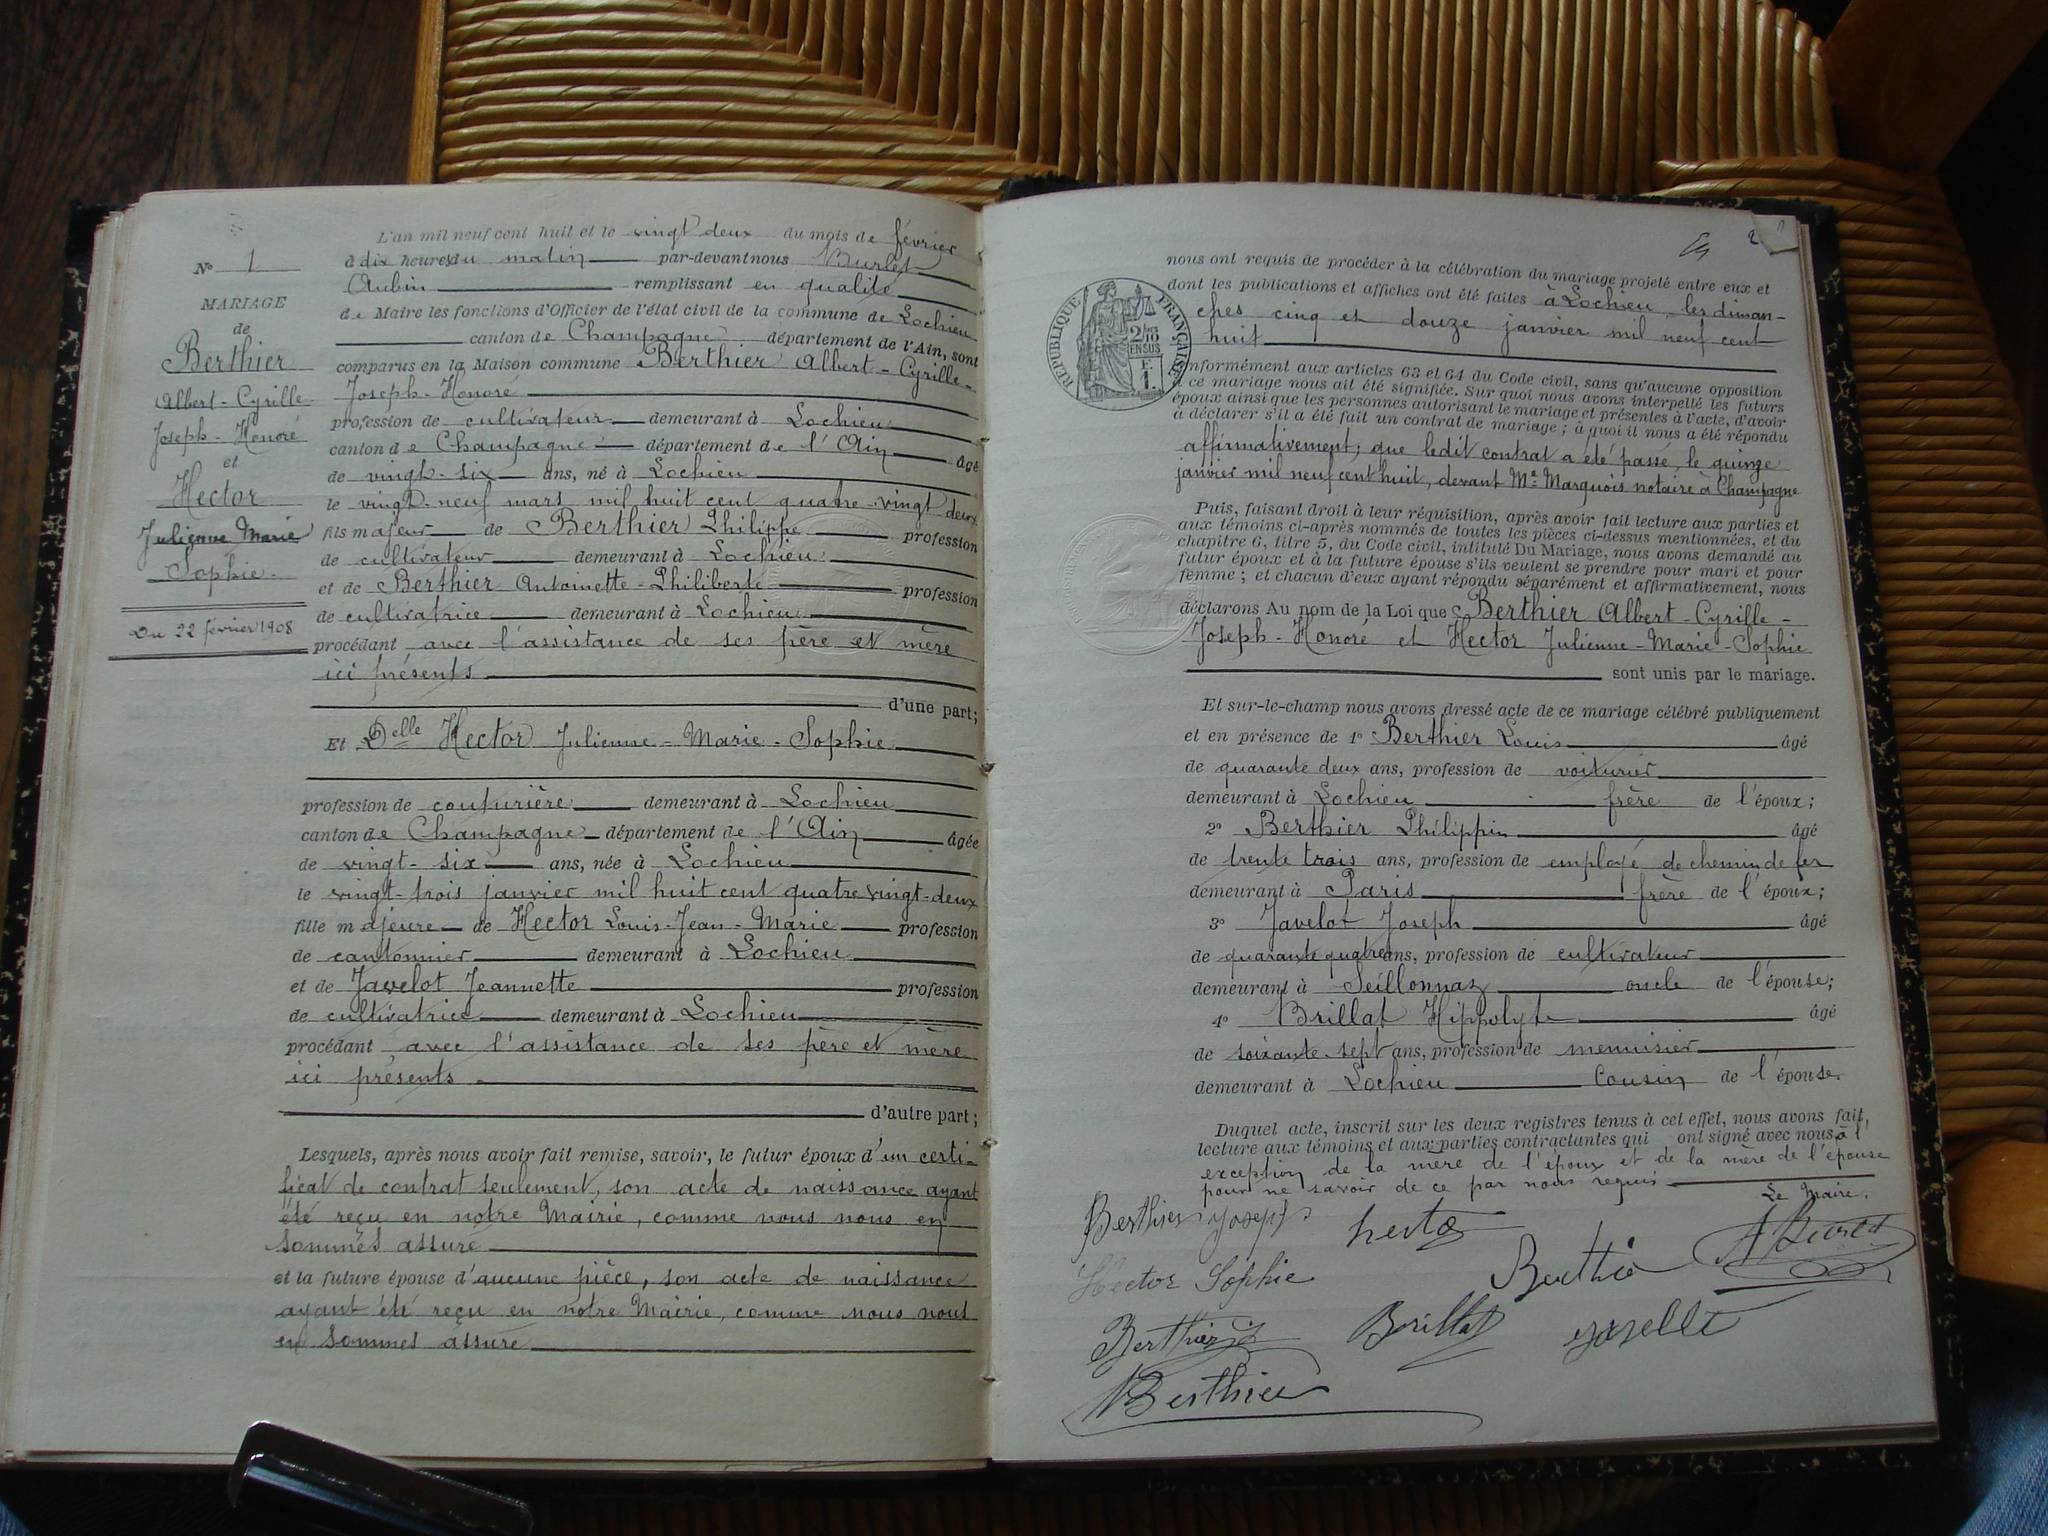 L'an mil neuf cent huit et le vingt deux du mois de février
à dix heures du matin par-devant nous Burlet
Aubin remplissant en qualité
de Maire les fonctions d'Officier de l'état civil de la commune de Lochieu
canton de Champagne département de l'Ain, sont
comparus en la Maison commune Berthier Albert-Cyrille-
Joseph-Honoré
profession de cultivateur demeurant à Lochieu
canton de Champagne département de l'Ain âgé
de vingt-six ans, né à Lochieu
le vingt-neuf mars mil huit cent quatre-vingt deux
fils majeur de Berthier Philippe profession
de cultivateur demeurant à Lochieu
et de Berthier Antoinette-Philiberte profession
de cultivatrice demeurant à Lochieu
procédant avec l'assistance de ses père et mère
ici présents
d'une part;
Et Delle Hector Julienne-Marie-Sophie
profession de couturière demeurant à Lochieu
canton de Champagne département de l'Ain âgée
de vingt-six ans, née à Lochieu
le vingt-trois janvier mil huit cent quatre vingt-deux
fille majeure de Hector Louis-Jean-Marie profession
de cantonnier demeurant à Lochieu
et de Javelot Jeannette profession
de cultivatrice demeurant à Lochieu
procédant avec l'assistance de ses père et mère
ici présents
d'autre part;
Lesquels, après nous avoir fait remise, savoir, le futur époux d'un certi-
ficat de contrat seulement, son acte de naissance ayant
été reçu en notre Mairie, comme nous nous en
sommes assuré
et la future épouse d'aucune pièce, son acte de naissance
ayant été reçu en notre Mairie, comme nous nous
en sommes assuré
N° 1
MARIAGE
de
Berthier
Albert-Cyrille-
Joseph-Honoré
et
Hector
Julienne Marie
Sophie
Du 22 février 1908
2
nous ont requis de procéder à la célébration du mariage projeté entre eux et
dont les publications et affiches ont été faites à Lochieu, les diman-
ches cinq et douze janvier mil neuf cent
huit
RÉPUBLIQUE FRANÇAISE
2/10
EN SUS
1F.
onformément aux articles 63 et 64 du Code civil, sans qu'aucune opposition
à ce mariage nous ait été signifiée. Sur quoi nous avons interpellé les futurs
époux ainsi que les personnes autorisant le mariage et présentes à l'acte, d'avoir
à déclarer s'il a été fait un contrat de mariage; à quoi il nous a été répondu
affirmativement; que ledit contrat a été passé, le quinze
janvier mil neuf cent huit, devant Me Marquois notaire à Champagne
Puis, faisant droit à leur réquisition, après avoir fait lecture aux parties et
aux témoins ci-après nommés de toutes les pièces ci-dessus mentionnées, et du
chapitre 6, titre 5, du Code civil, intitulé Du Mariage, nous avons demandé au
futur époux et à la future épouse s'ils veulent se prendre pour mari et pour
femme; et chacun d'eux ayant répondu séparément et affirmativement, nous
déclarons Au nom de la Loi que Berthier Albert-Cyrille-
Joseph-Honoré et Hector Julienne-Marie-Sophie
sont unis par le mariage.
Et sur-le-champ nous avons dressé acte de ce mariage célébré publiquement
et en présence de 1° Berthier Louis âgé
de quarante deux ans, profession de voiturier
demeurant à Lochieu frère de l'époux;
2° Berthier Philippin âgé
de trente trois ans, profession de employé de chemin de fer
demeurant à Paris frère de l'époux;
3° Javelot Joseph âgé
de quarante quatre ans, profession de cultivateur
demeurant à Seillonnaz oncle de l'épouse;
4° Brillat Hippolyte âgé
de soixante-sept ans, profession de menuisier
demeurant à Lochieu Cousin de l'épouse.
Duquel acte, inscrit sur les deux registres tenus à cet effet, nous avons fait
lecture aux témoins et aux parties contractantes qui ont signé avec nous, à l'
exception de la mère de l'époux et de la mère de l'épouse
pour ne savoir de ce par nous requis
Le Maire,
Berthier Joseph
Hector Sophie
Berthier
Brillat
Berthier